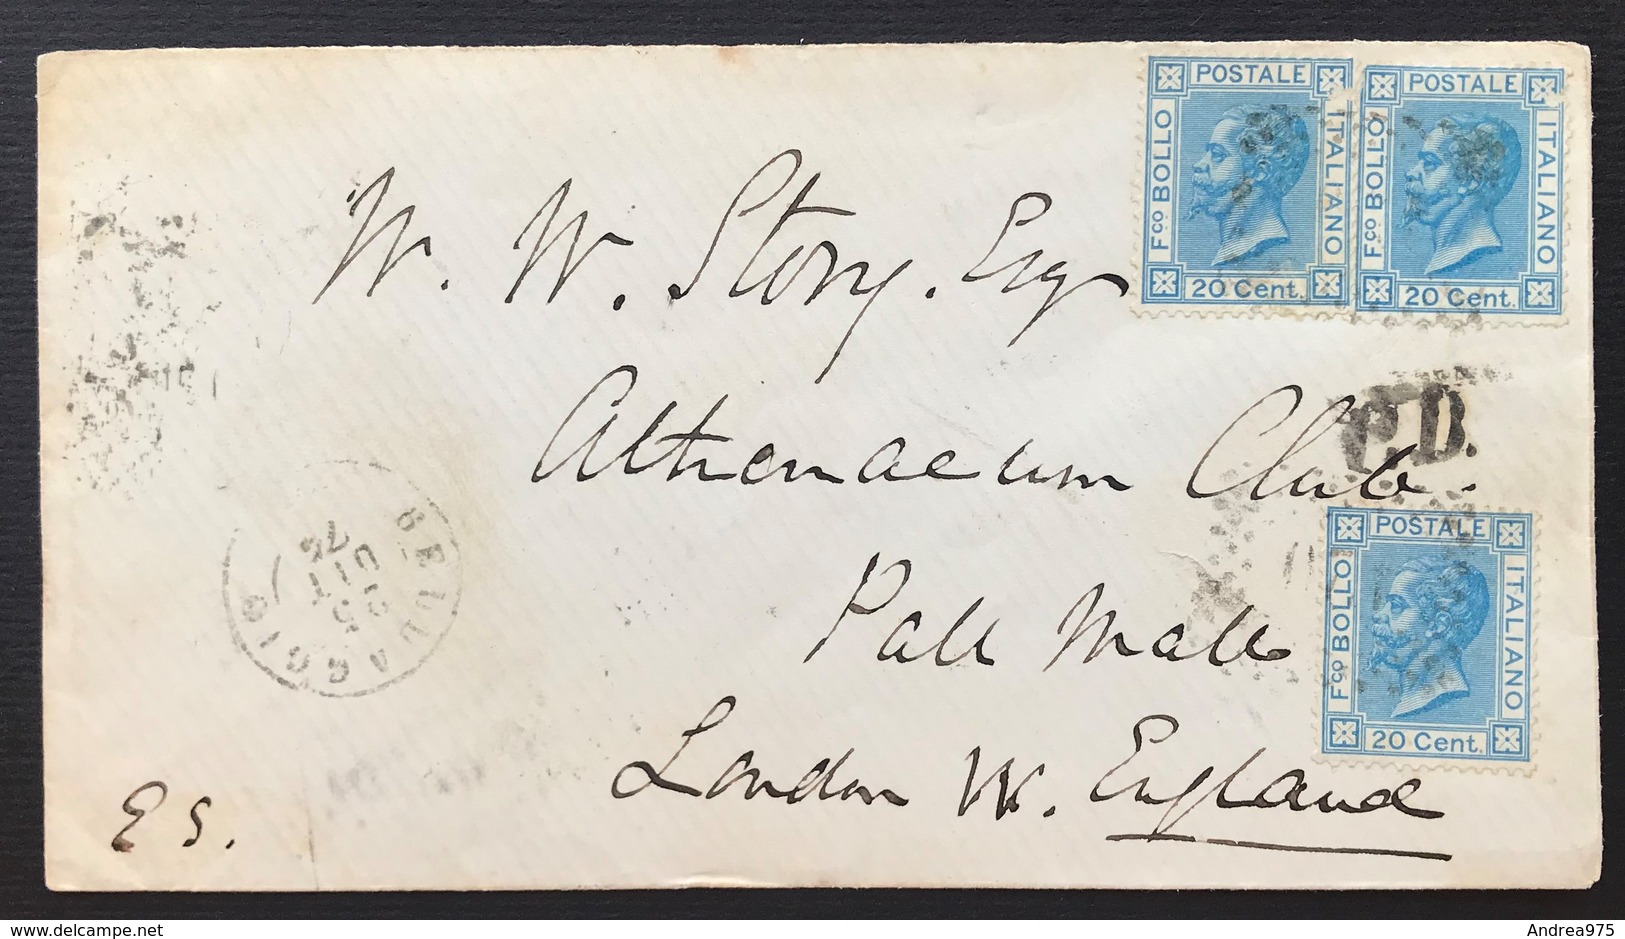 POSTALE
Fco BOLLO
ITALIANO
20 Cent.
POSTALE
Fco BOLLO
ITALIANO
20 Cent.
W. W. Story. Esq
Athenaeum Club.
P.D.
Pall Mall
London W. England
POSTALE
Fco BOLLO
ITALIANO
20 Cent.
25
74
E S.
delcampe.net
Andrea975